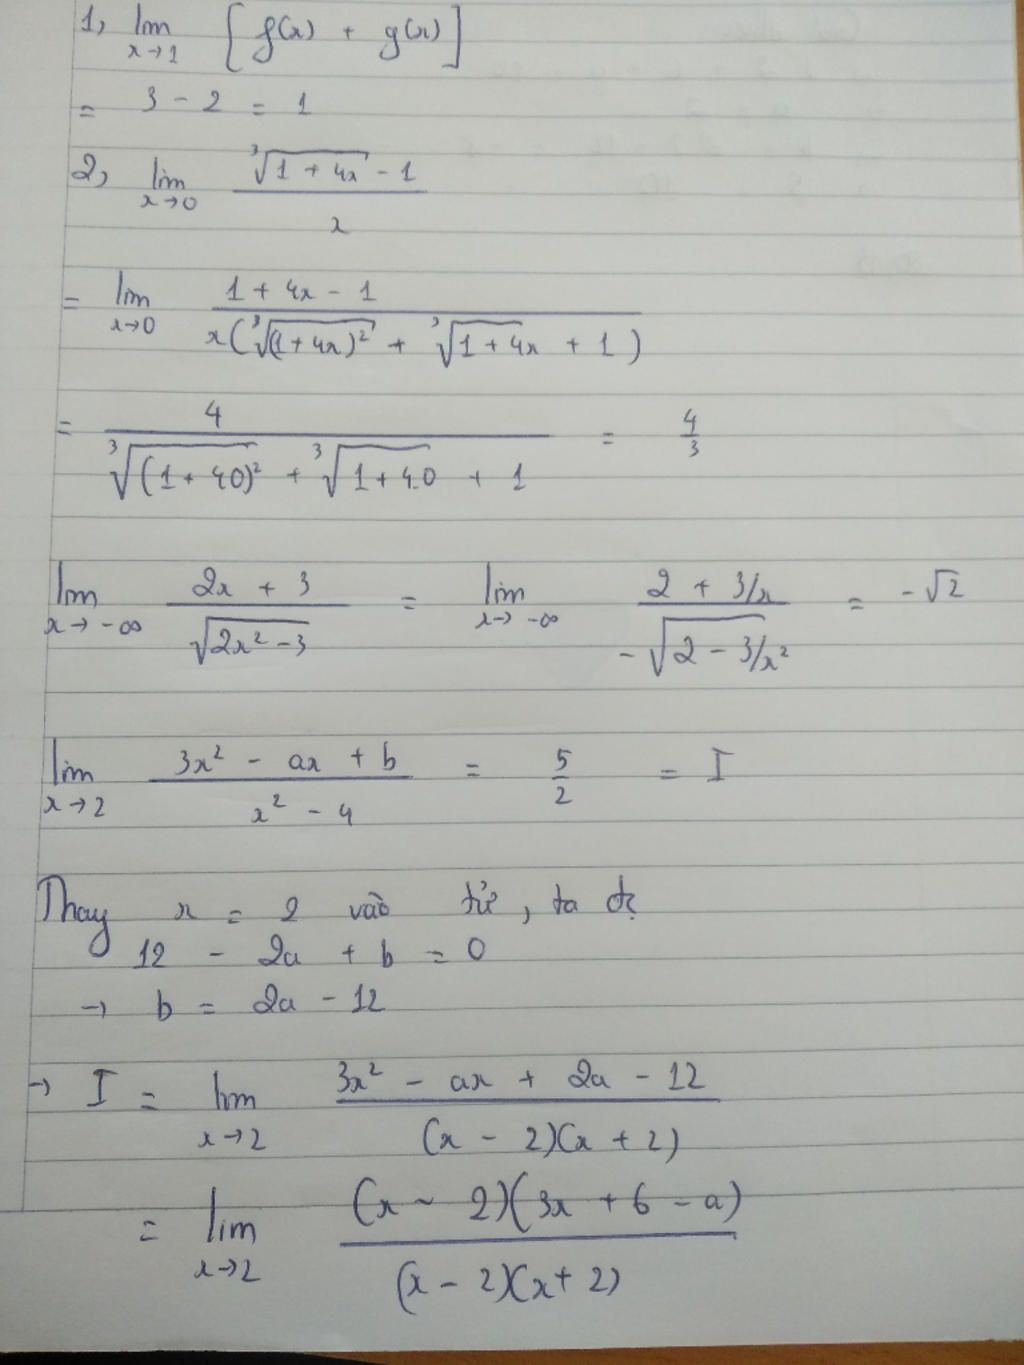 1, lim x→1 [f(x) + g(x)]
= 3 - 2 = 1
2, lim x→0 (∛(1 + 4x) - 1) / x
= lim x→0 (1 + 4x - 1) / (x(∛(1+4x)² + ∛(1+4x) + 1))
= 4 / (∛(1+4.0)² + ∛(1+4.0) + 1) = 4/3
lim x→-∞ (2x + 3) / √(2x² - 3) = lim x→-∞ (2 + 3/x) / (-√(2 - 3/x²)) = -√2
lim x→2 (3x² - ax + b) / (x² - 4) = 5/2 = I
Thay x = 2 vào tử, ta đc
12 - 2a + b = 0
→ b = 2a - 12
→ I = lim x→2 (3x² - ax + 2a - 12) / ((x - 2)(x + 2))
= lim x→2 ((x - 2)(3x + 6 - a)) / ((x - 2)(x + 2))